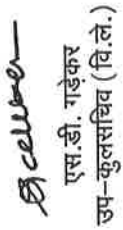 एस.डी. गडेकर
उप–कुलसचिव (वि.ले.)